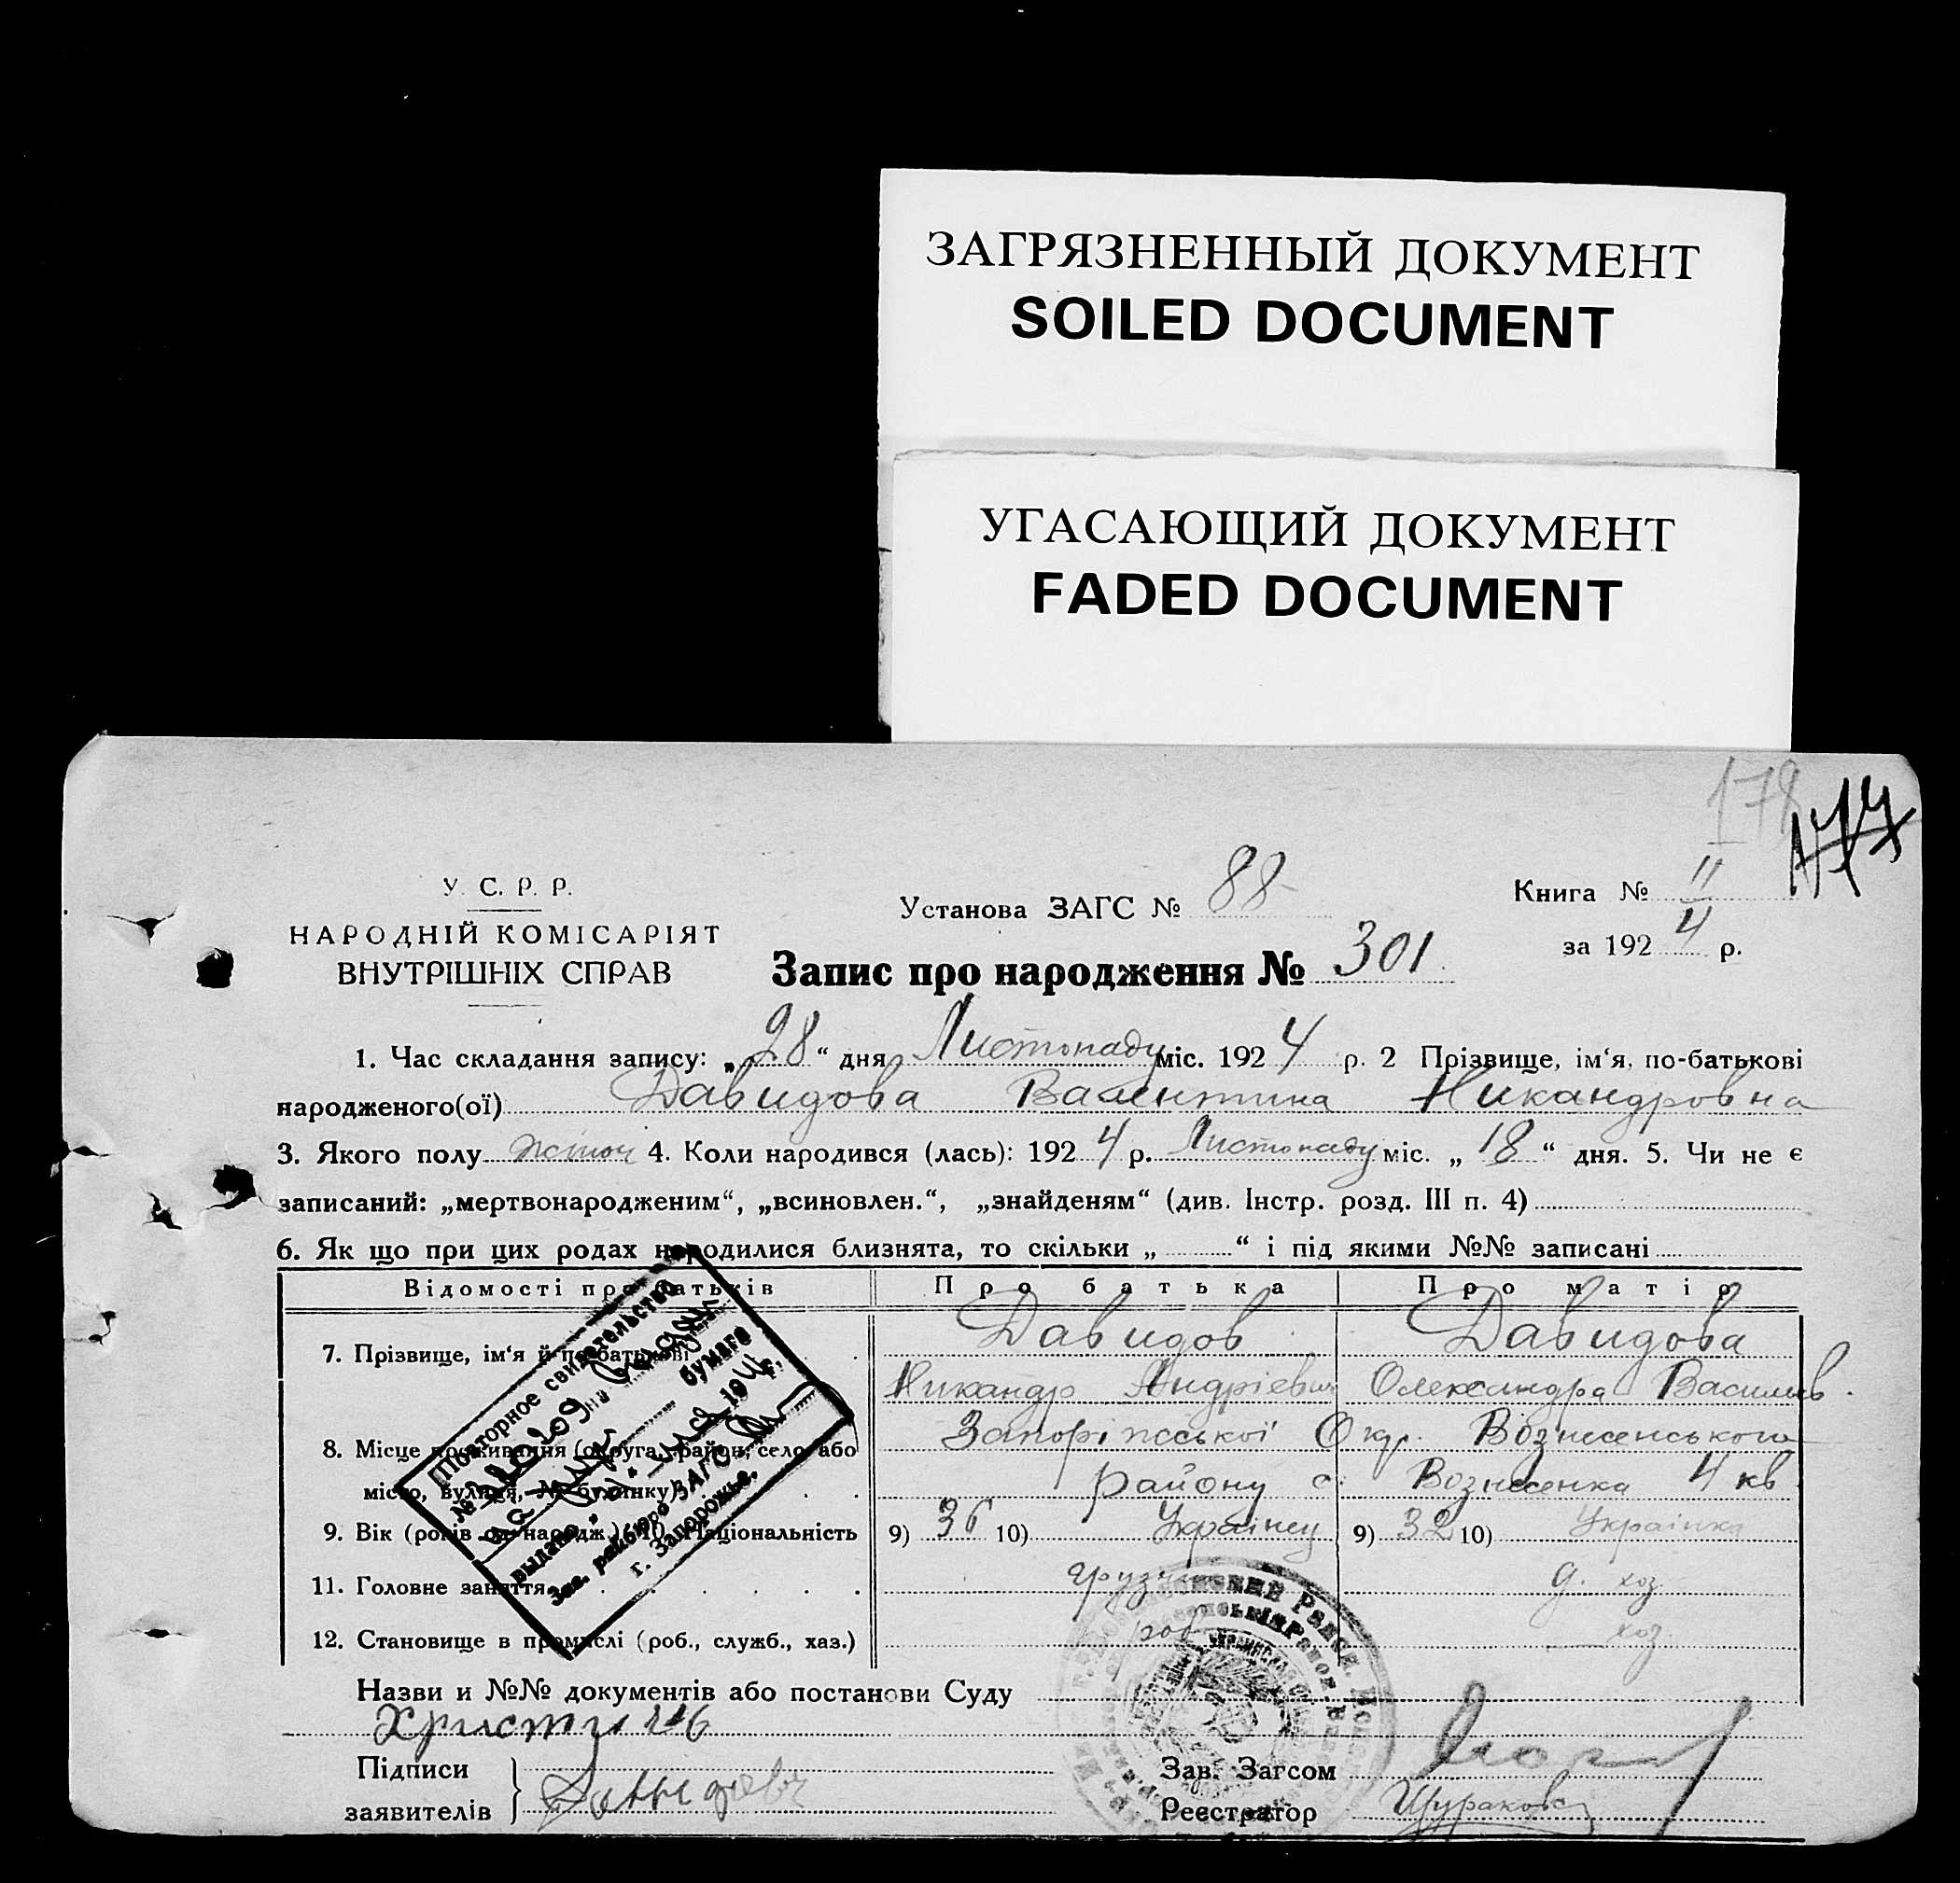 ЗАГРЯЗНЕННЫЙ ДОКУМЕНТ
SOILED DOCUMENT
УГАСАЮЩИЙ ДОКУМЕНТ
FADED DOCUMENT
178
177
У. С. Р. Р.
НАРОДНІЙ КОМІСАРІЯТ
ВНУТРІШНІХ СПРАВ
Установа ЗАГС № 88
Книга № II
за 1924 р.
Запис про народження № 301
1. Час складання запису: „28“ дня Листопаду міс. 1924 р. 2 Прізвище, ім‘я, по-батькові
народженого(ої) Давидова Валентина Никандровна
3. Якого полу жіноч 4. Коли народився (лась): 1924 р. Листопаду міс. „18“ дня. 5. Чи не є
записаний: „мертвонародженим“, „всиновлен.“, „знайденям“ (див. Інстр. розд. III п. 4)
6. Як що при цих родах народилися близнята, то скільки „ “ і під якими №№ записані
Відомості про батьків Про батька Про матір
7. Прізвище, ім‘я й по-батькові Давидов Давидова
Никандр Андрієвич Олександра Васильів.
8. Місце проживання (округа, район, село або Запоріжської Окр. Вознесенського
місто, вулиця, № будинку) району с. Вознесенка 4 кв
9. Вік (років од народж.) 10. Національність 9) 36 10) Українец 9) 32 10) Українка
11. Головне заняття грузчик д. хоз.
12. Становище в промислі (роб., служб., хаз.) роб. хоз.
Повторное свидетельство
№
на бумаге
выдано 194 г.
Зав. райбюро ЗАГС
г. Запорожье.
Назви и №№ документів або постанови Суду
Підписи
заявителів Давидова
Зав. Загсом
Реєстратор Щуракова